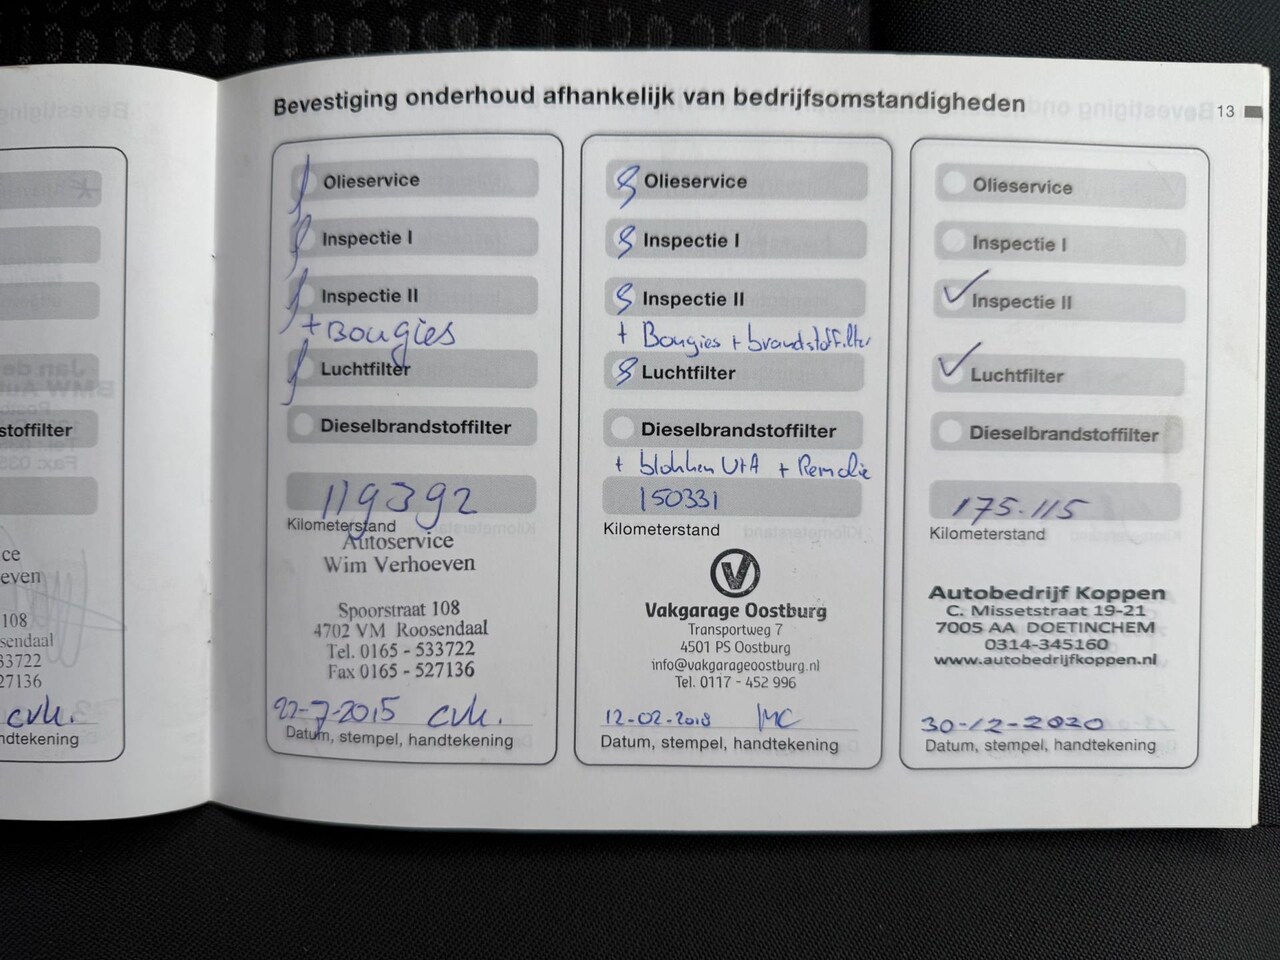 Bevestiging onderhoud afhankelijk van bedrijfsomstandigheden
13
stoffilter
ce
even
108
sendaal
33722
27136
cvh.
ndtekening
Olieservice
Inspectie I
Inspectie II
+ Bougies
Luchtfilter
Dieselbrandstoffilter
119392
Kilometerstand
Autoservice
Wim Verhoeven
Spoorstraat 108
4702 VM Roosendaal
Tel. 0165 - 533722
Fax 0165 - 527136
22-7-2015 cvh.
Datum, stempel, handtekening
Olieservice
Inspectie I
Inspectie II
+ Bougies + brandstoffilter
Luchtfilter
Dieselbrandstoffilter
+ blokken V+A + Remolie
150331
Kilometerstand
V
Vakgarage Oostburg
Transportweg 7
4501 PS Oostburg
info@vakgarageoostburg.nl
Tel. 0117 - 452 996
12-02-2018 MC
Datum, stempel, handtekening
Olieservice
Inspectie I
Inspectie II
Luchtfilter
Dieselbrandstoffilter
175.115
Kilometerstand
Autobedrijf Koppen
C. Missetstraat 19-21
7005 AA DOETINCHEM
0314-345160
www.autobedrijfkoppen.nl
30-12-2020
Datum, stempel, handtekening